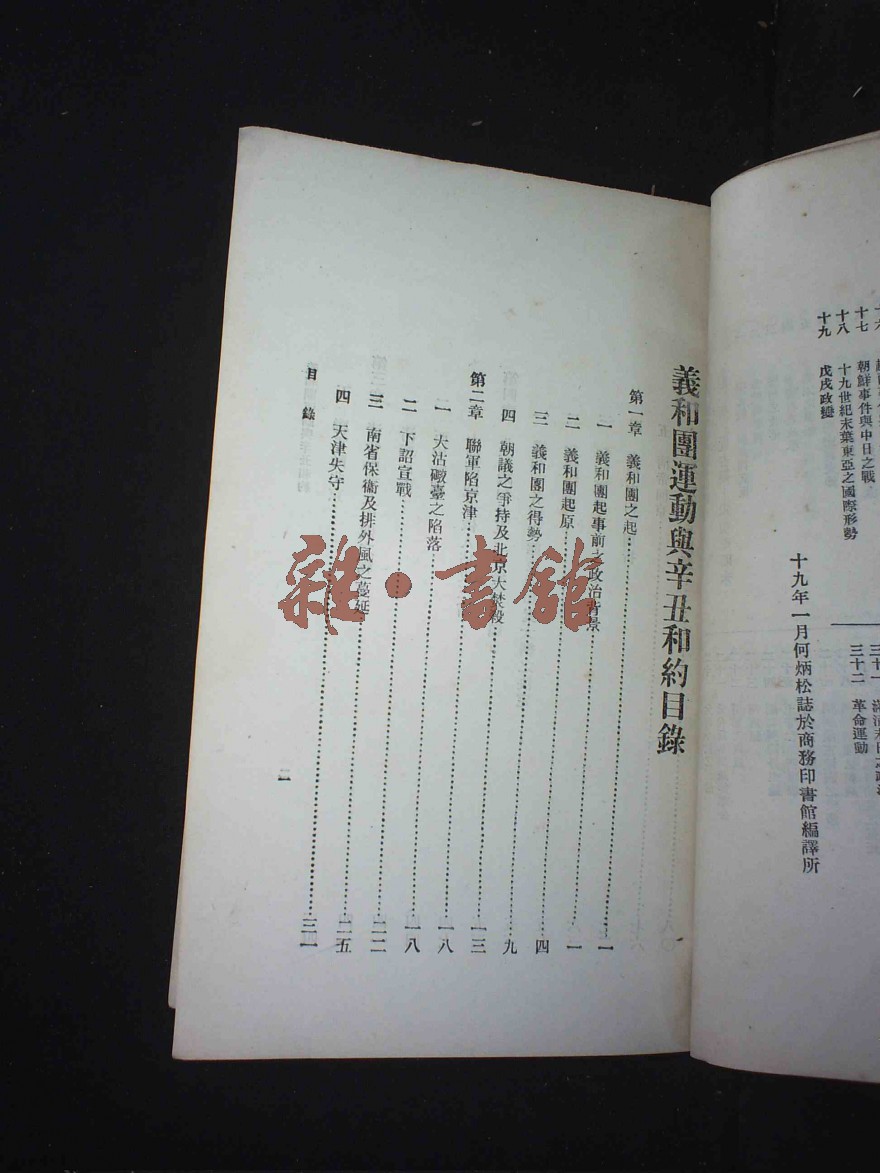 十七 朝鮮事件與中日之戰
十八 十九世紀末葉東亞之國際形勢
十九 戊戌政變
三十二 革命運動
十九年一月何炳松誌於商務印書館編譯所
義和團運動與辛丑和約目錄
第一章 義和團之起……一
一 義和團起事前之政治背景……一
二 義和團起原……四
三 義和團之得勢……九
四 朝議之爭持及北京大焚殺……一三
第二章 聯軍陷京津……一八
一 大沽礮臺之陷落……一八
二 下詔宣戰……二二
三 南省保衞及排外風之蔓延……二五
四 天津失守……三一
目錄
二
雜·書館